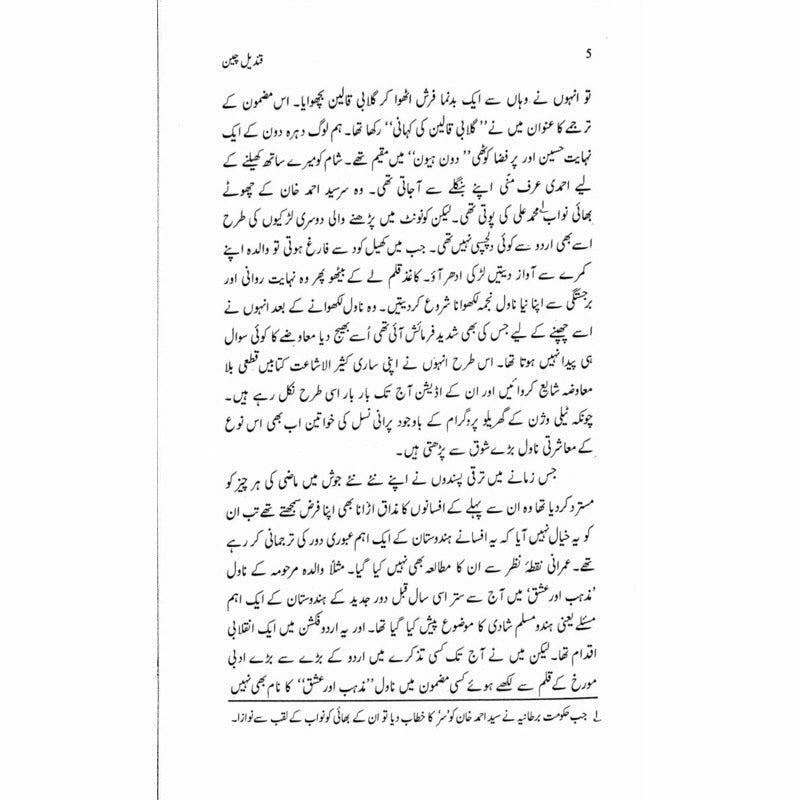 5
قندیل چین
تو انہوں نے وہاں سے ایک بدنما فرش اٹھوا کر گلابی قالین بچھوایا۔ اس مضمون کے
ترجمے کا عنوان میں نے ’’گلابی قالین کی کہانی‘‘ رکھا تھا۔ ہم لوگ دہرہ دون کے ایک
نہایت حسین اور پر فضا کوٹھی ’’دون ہیون‘‘ میں مقیم تھے۔ شام کو میرے ساتھ کھیلنے کے
لیے احمدی عرف منّی اپنے بنگلے سے آ جاتی تھی۔ وہ سر سید احمد خان کے چھوٹے
بھائی نواب۱ محمد علی کی پوتی تھی۔ لیکن کونونٹ میں پڑھنے والی دوسری لڑکیوں کی طرح
اسے بھی اردو سے کوئی دلچسپی نہیں تھی۔ جب میں کھیل کود سے فارغ ہوتی تو والدہ اپنے
کمرے سے آواز دیتیں لڑکی ادھر آؤ۔ کاغذ قلم لے کے بیٹھو پھر وہ نہایت روانی اور
برجستگی سے اپنا نیا ناول نجمہ لکھوانا شروع کر دیتیں۔ وہ ناول لکھوانے کے بعد انہوں نے
اسے چھپنے کے لیے جس کی بھی شدید فرمائش آئی تھی اُسے بھیج دیا معاوضے کا کوئی سوال
ہی پیدا نہیں ہوتا تھا۔ اس طرح انہوں نے اپنی ساری کثیر الاشاعت کتابیں قطعی بلا
معاوضہ شایع کروائیں اور ان کے اڈیشن آج تک بار بار اسی طرح نکل رہے ہیں۔
چونکہ ٹیلی وژن کے گھریلو پروگرام کے باوجود پرانی نسل کی خواتین اب بھی اس نوع
کے معاشرتی ناول بڑے شوق سے پڑھتی ہیں۔
جس زمانے میں ترقی پسندوں نے اپنے نئے نئے جوش میں ماضی کی ہر چیز کو
مسترد کر دیا تھا وہ ان سے پہلے کے افسانوں کا مذاق اڑانا بھی اپنا فرض سمجھتے تھے تب ان
کو یہ خیال نہیں آیا کہ یہ افسانے ہندوستان کے ایک اہم عبوری دور کی ترجمانی کر رہے
تھے۔ عمرانی نقطۂ نظر سے ان کا مطالعہ بھی نہیں کیا گیا۔ مثلاً والدہ مرحومہ کے ناول
’مذہب اور عشق‘ میں آج سے ستر اسی سال قبل دور جدید کے ہندوستان کے ایک اہم
مسئلے یعنی ہندو مسلم شادی کا موضوع پیش کیا گیا تھا۔ اور یہ اردو فکشن میں ایک انقلابی
اقدام تھا۔ لیکن میں نے آج تک کسی تذکرے میں اردو کے بڑے سے بڑے ادبی
مورخ کے قلم سے لکھے ہوئے کسی مضمون میں ناول ’’مذہب اور عشق‘‘ کا نام بھی نہیں
۱ جب حکومت برطانیہ نے سید احمد خان کو ’سر‘ کا خطاب دیا تو ان کے بھائی کو نواب کے لقب سے نوازا۔